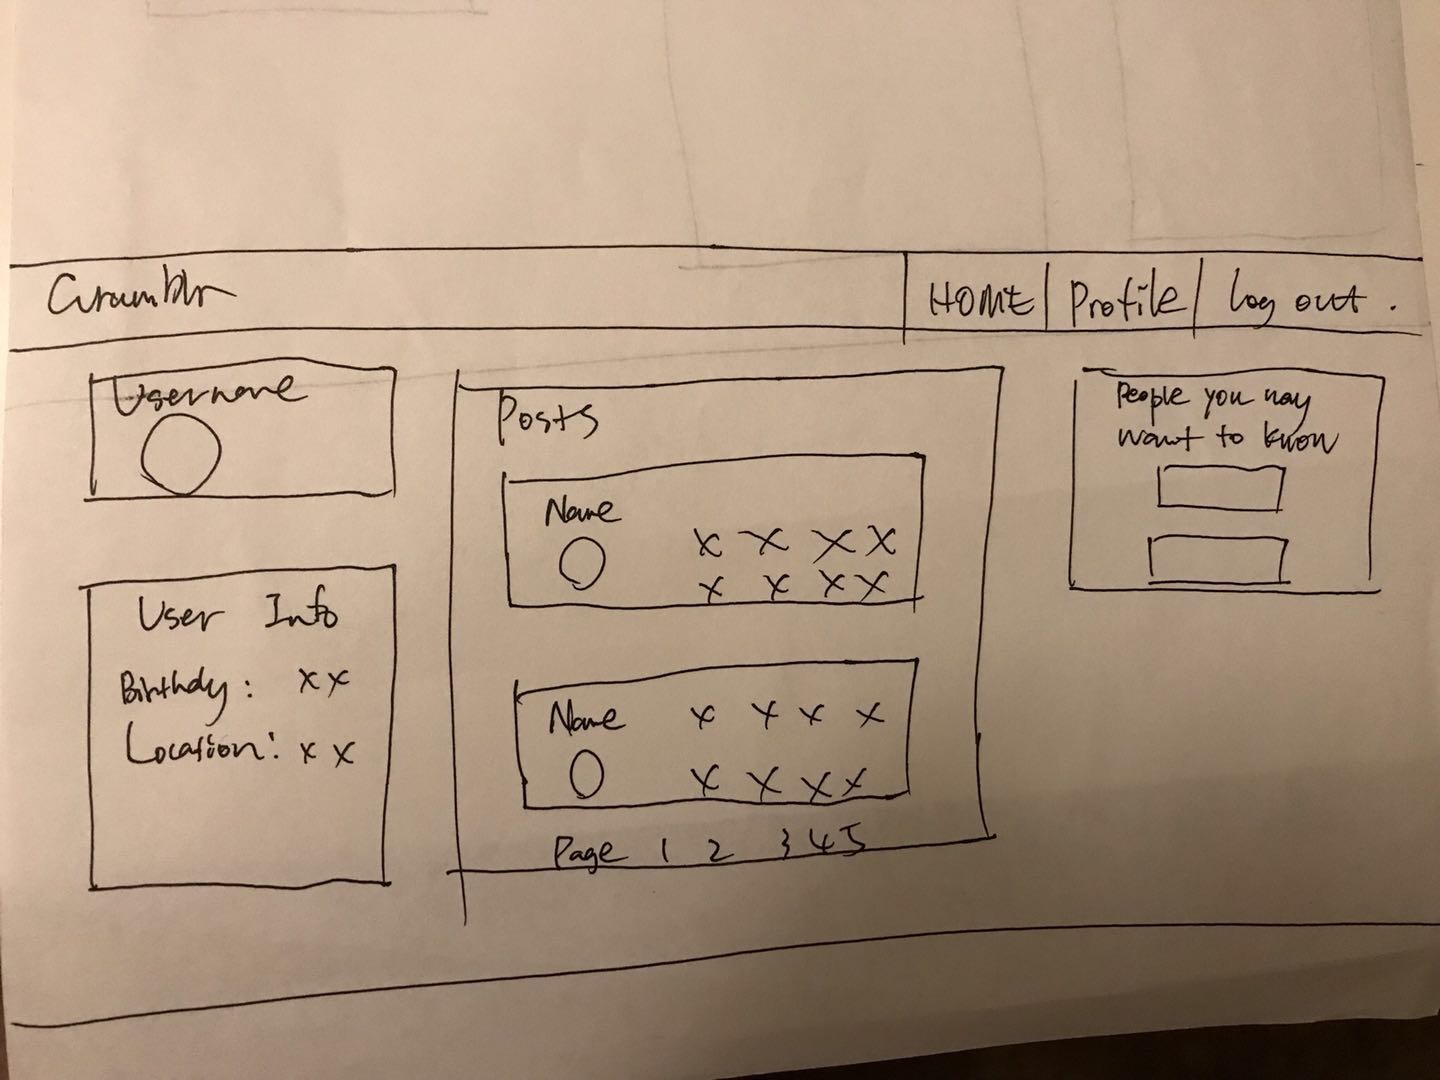 Grumblr
HOME
Profile
Log out.
Username
User Info
Birthdy: x x
Location: x x
Posts
Name
x x x x
x x x x
Name x x x x
x x x x
Page 1 2 3 4 5
People you may
want to know